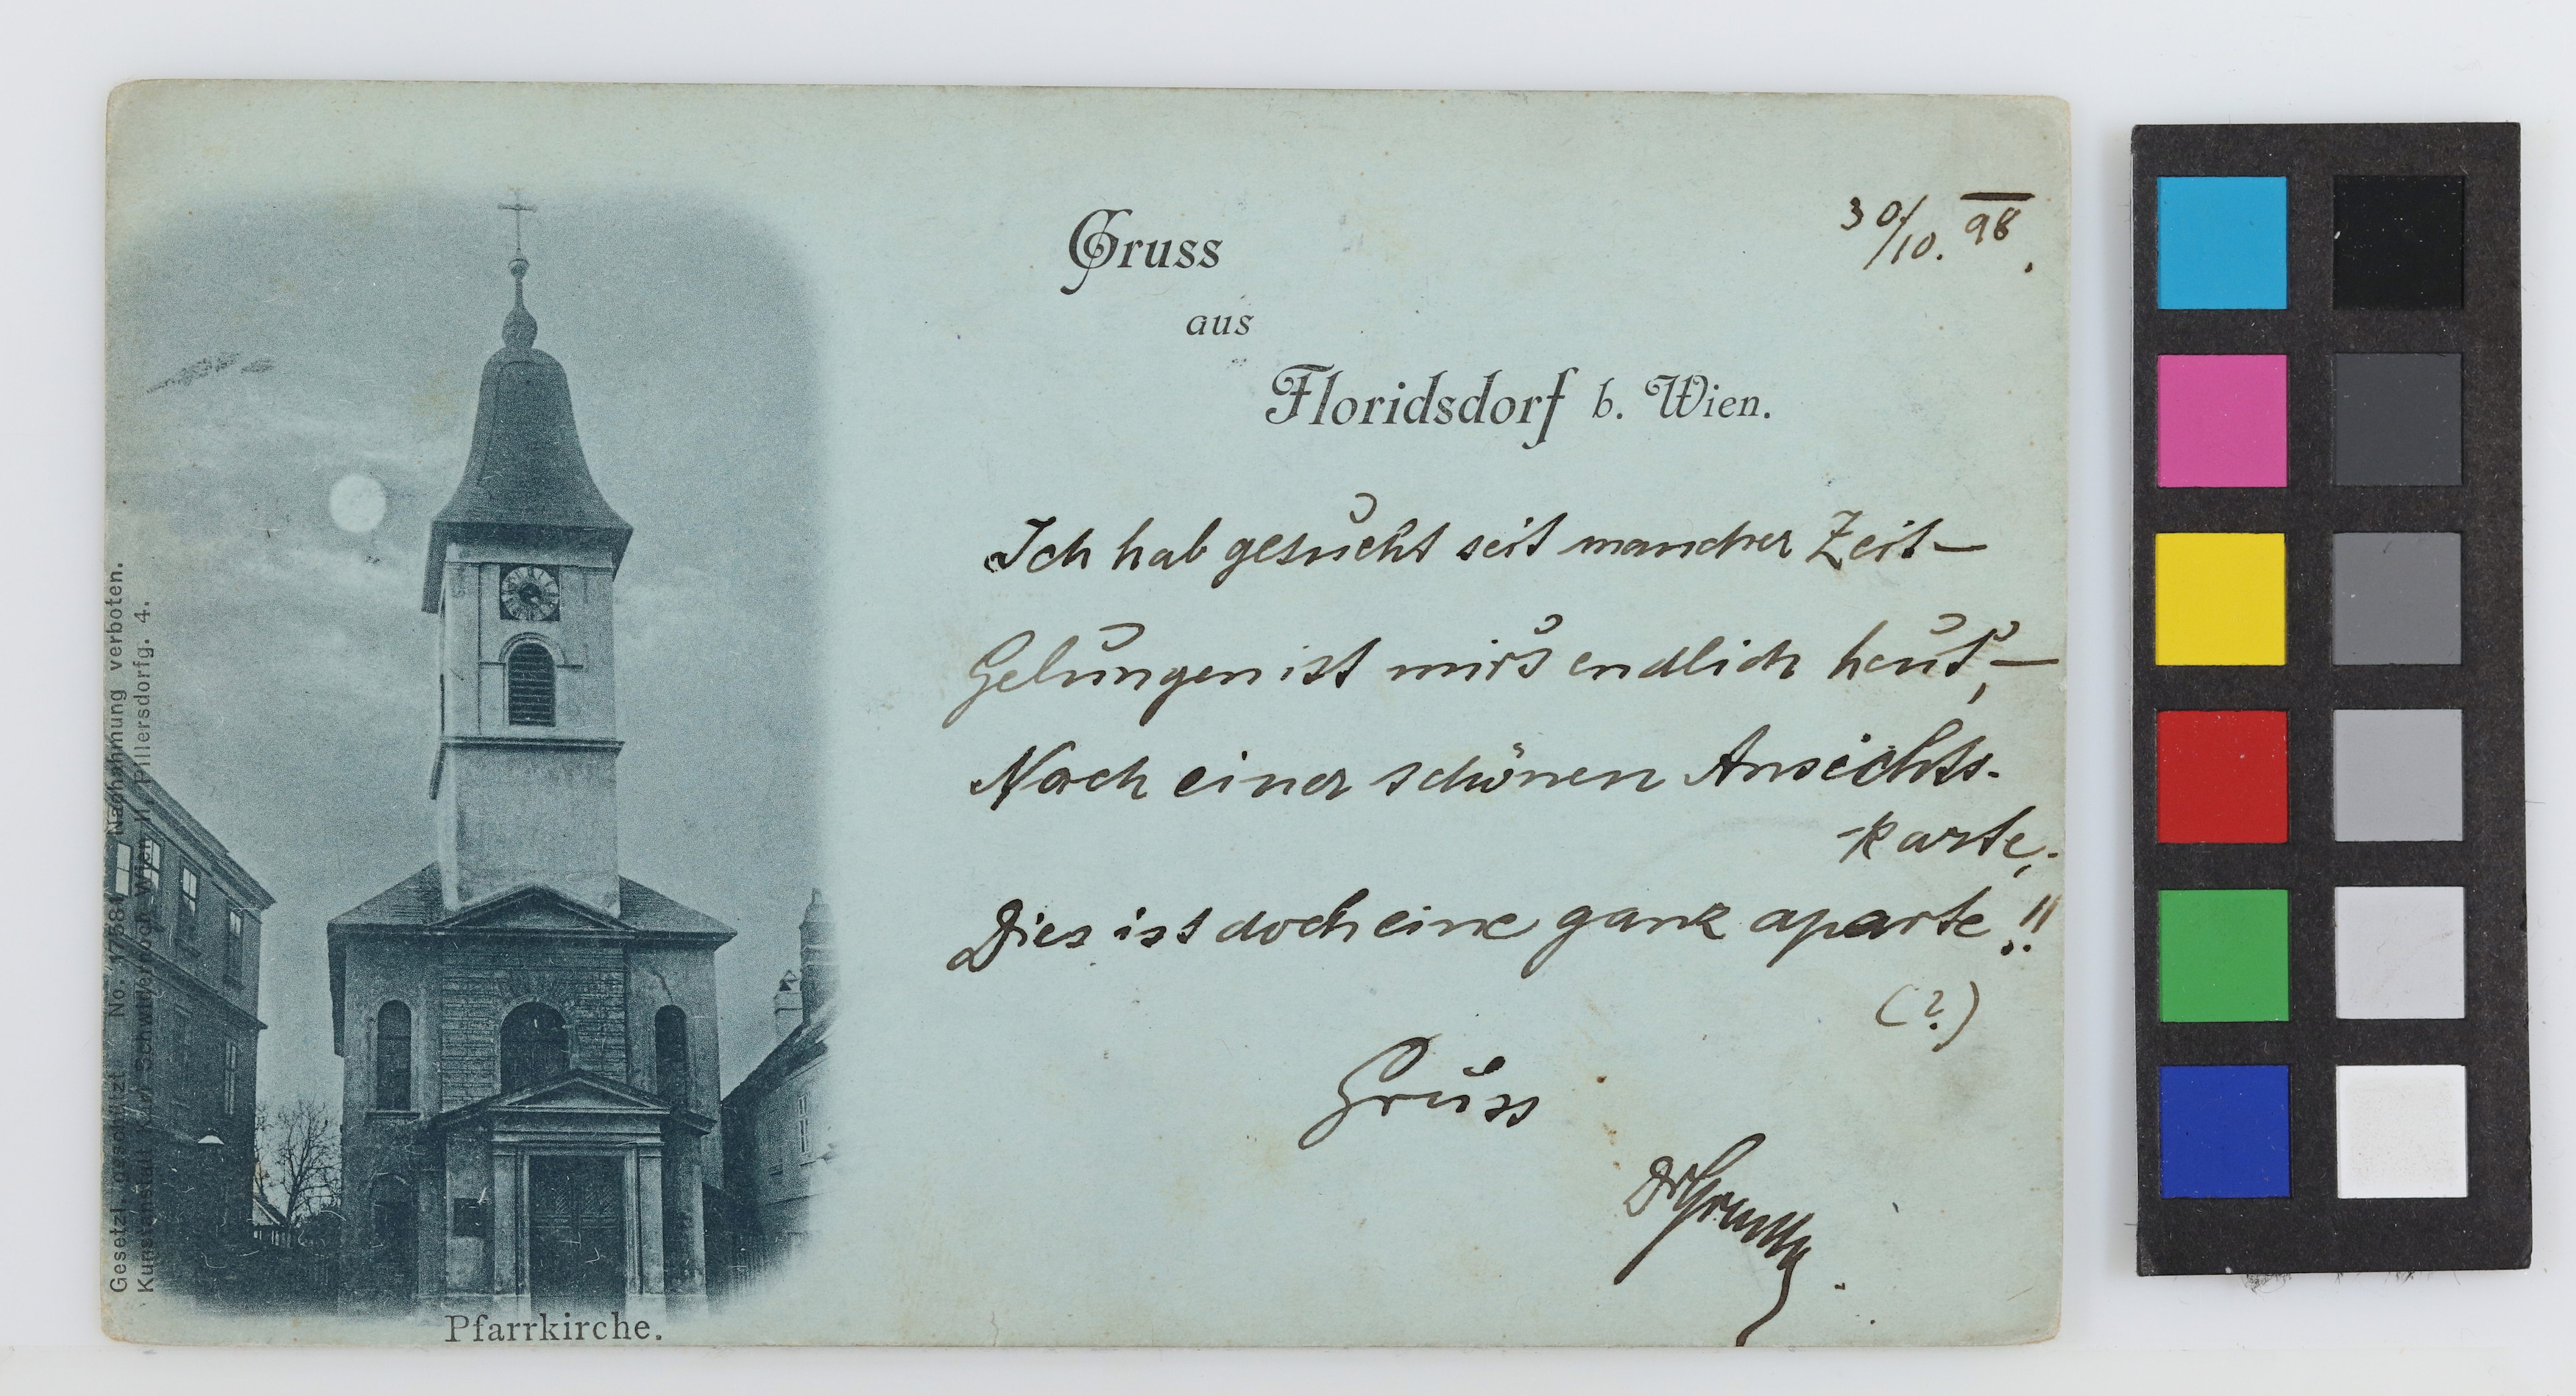 Gruss
aus
Floridsdorf b. Wien.
30/10. 98.
Ich hab gesucht seit mancher Zeit –
Gelungen ist mirs endlich heut', –
Nach einer schönen Ansichts-
karte,
Dies ist doch eine ganz aparte!!
(?)
Gruss
Gesetzl. geschützt No. 17581 Nachahmung verboten.
Kunstanstalt Karl Schwidernoch Wien II, Pillersdorfg. 4.
Pfarrkirche.